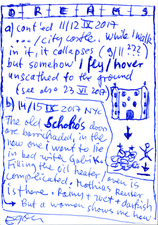 DREAMS
a) cont'ed 11/12 IX 2017
city castle. While I walk
in it, it collapses (9/11 ???)
but somehow I fley/hover
unscathed to the ground
(see also 23 VI 2017)
b) 14/15 IX 2017 NYC
The old Schokos door
are barricaded, in the
new one I went to lie
in bed with Gabi K.
Filling the oil heater/oven is
complicated. Mathias Reuter
is there. Fainy + yuct + darfish
→ But a women shows me how